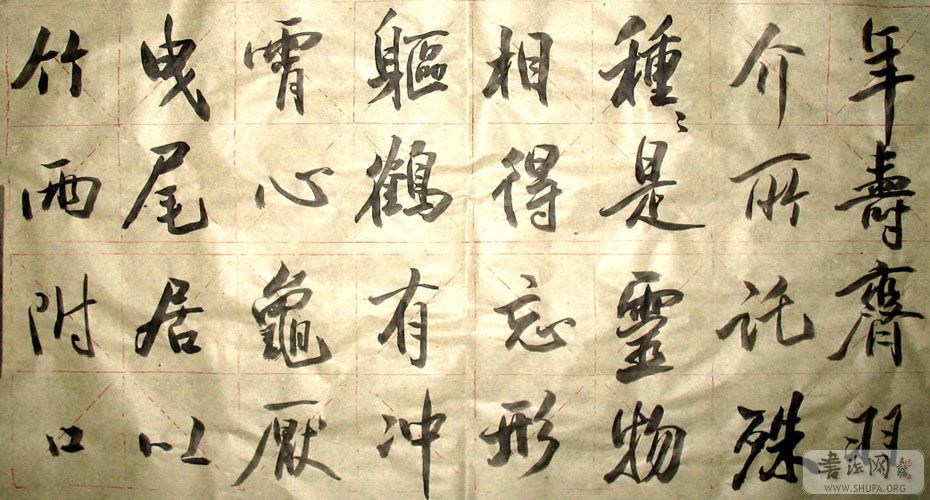 年壽齊羽
介所託殊
種〻是靈物
相得忘形
軀鶴有冲
霄心龜厭
曳尾居以
竹兩附口
書法网
WWW.SHUFA.ORG